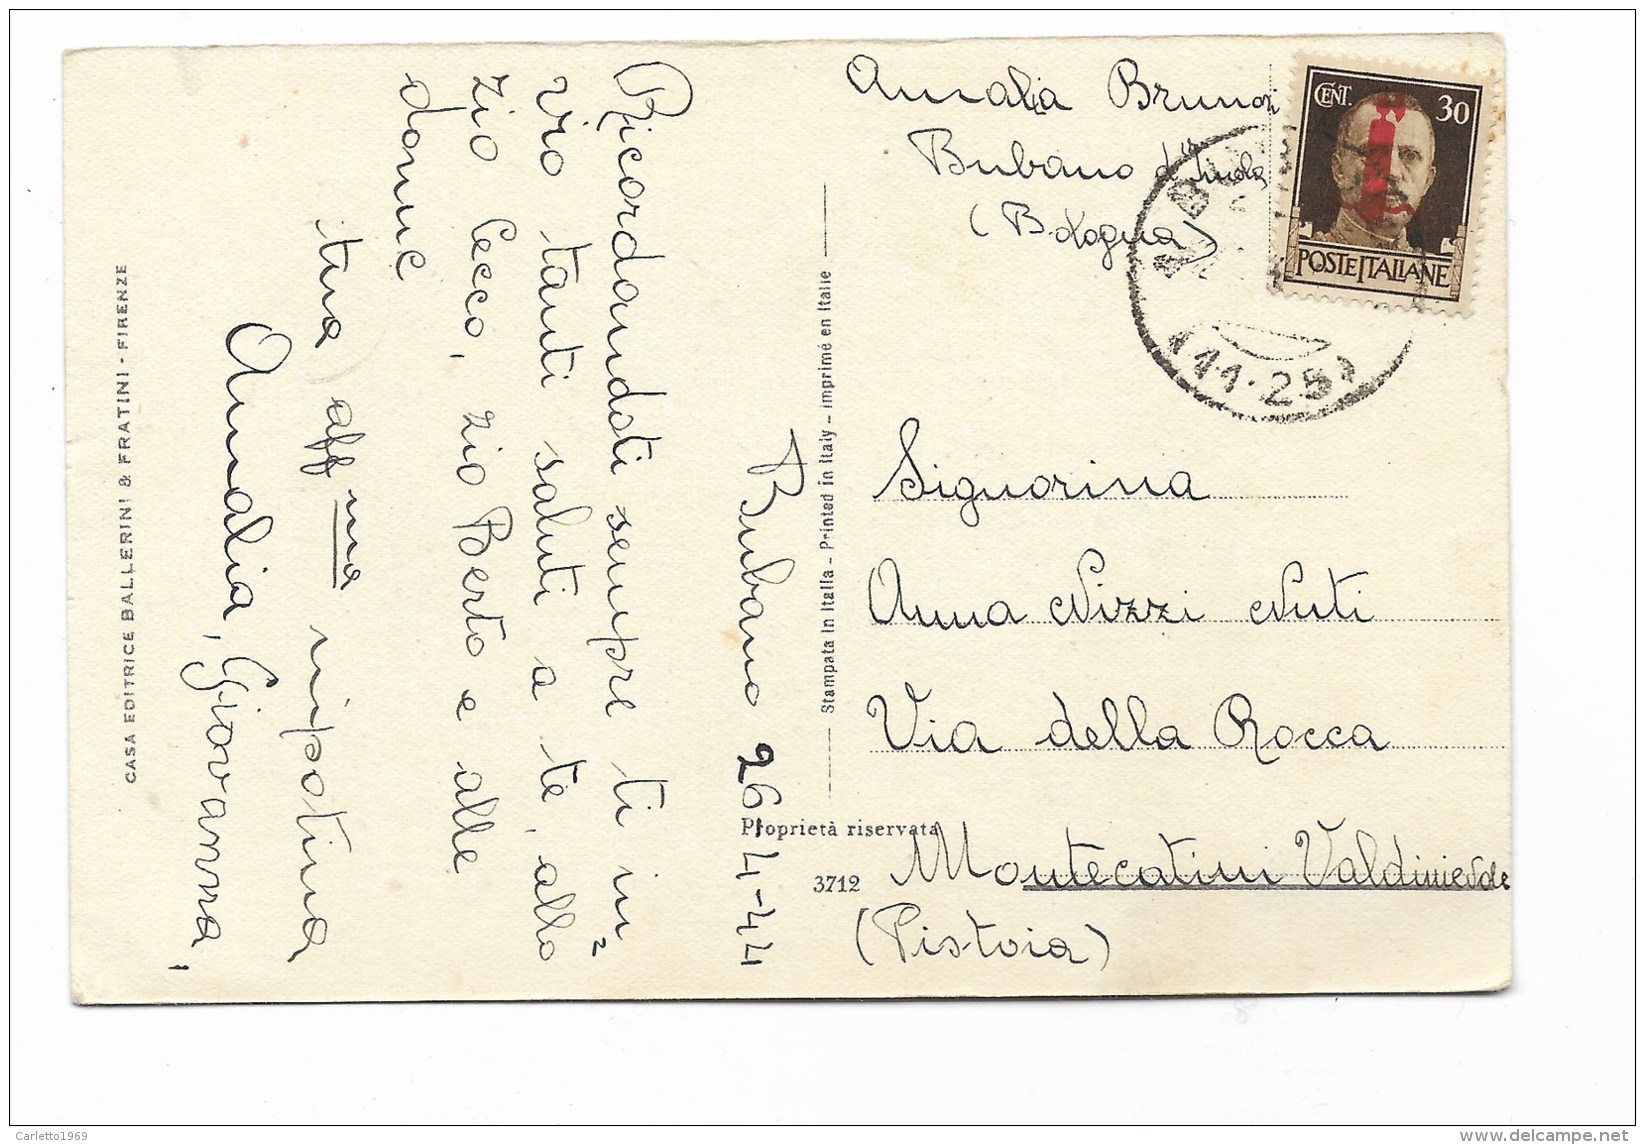 Amalia Brunori
Bubano d'Imola
(Bologna)
CENT. 30
POSTE ITALIANE
(11·25)
Signorina
Anna Nizzi Nuti
Via della Rocca
Montecatini Valdinievole
(Pistoia)
Stampata in Italia - Printed in Italy - Imprimé en Italie
Proprietà riservata
3712
Bubano 26-4-44
Ricordandoti sempre ti in=
vio tanti saluti a te, allo
zio Cecco, zio Berto e alle
donne
tua aff.ma nipotina
Amalia, Giovanna,
CASA EDITRICE BALLERINI & FRATINI - FIRENZE
Carletto1969
delcampe.net